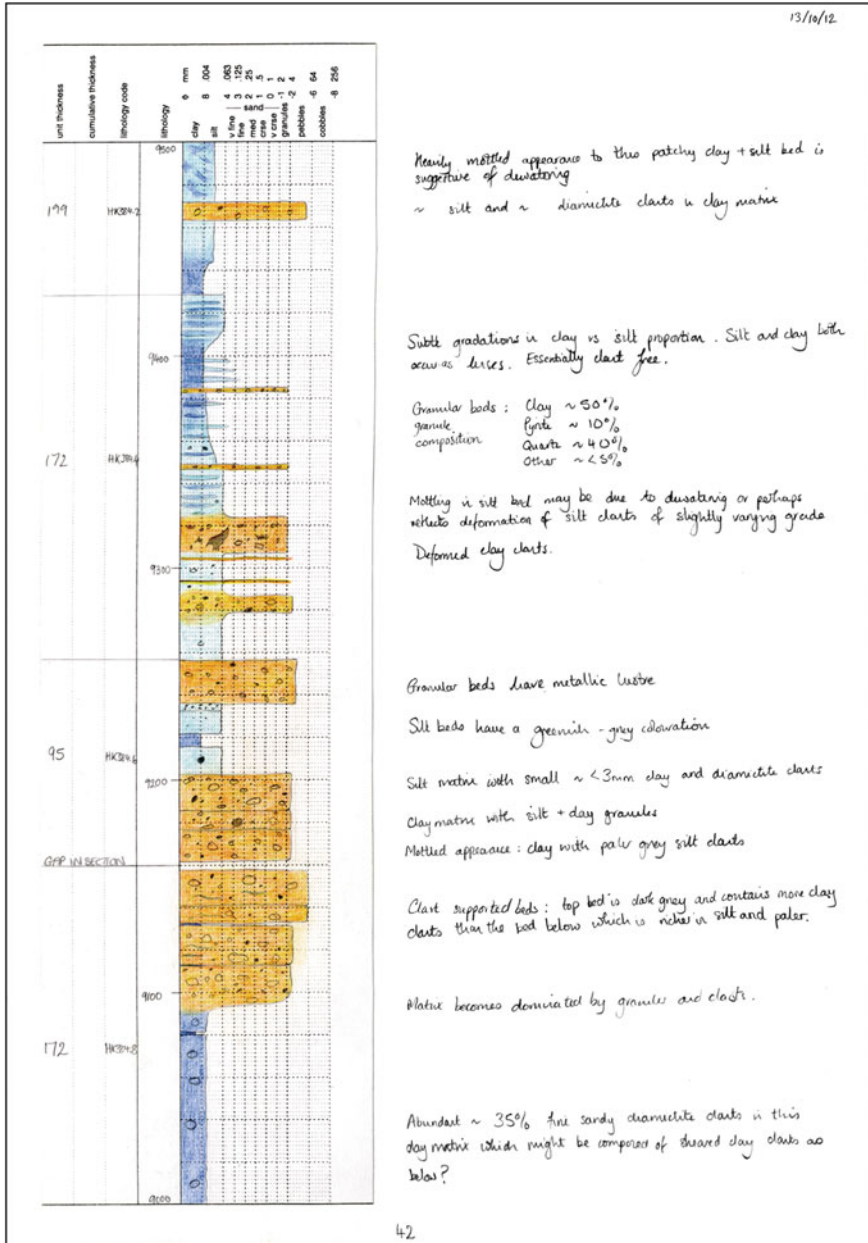 13/10/12
unit thickness
cumulative thickness
lithology code
lithology
ϕ mm
clay 8 .004
silt
v fine 4 .063
fine 3 .125
sand
med 2 .25
crse 1 .5
v crse 0 1
granules -1 2
pebbles -2 4
cobbles -6 64
-8 256
9500
Heavily mottled appearance to this patchy clay + silt bed is
suggestive of dewatering
~ silt and ~ diamictite clasts in clay matrix
199
HK384.2
Subtle gradations in clay vs silt proportion. Silt and clay both
occur as lenses. Essentially clast free.
9400
Granular beds : Clay ~50%
granule Pyrite ~10%
composition Quartz ~40%
Other ~<5%
172
Mottling in silt bed may be due to dewatering or perhaps
reflects deformation of silt clasts of slightly varying grade
Deformed clay clasts.
9300
Granular beds have metallic lustre
Silt beds have a greenish - grey colouration
95
HK384.6
9200
Silt matrix with small ~<3mm clay and diamictite clasts
Clay matrix with silt + clay granules
Mottled appearance : clay with paler grey silt clasts
GAP IN SECTION
Clast supported beds : top bed is dark grey and contains more clay
clasts than the bed below which is richer in silt and paler.
9100
Matrix becomes dominated by granules and clasts.
172
HK384.8
Abundant ~ 35% fine sandy diamictite clasts in this
clay matrix which might be composed of sheared clay clasts as
below?
9000
42